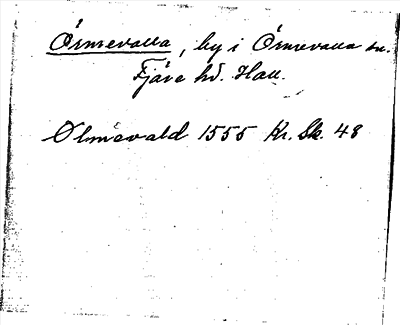 Örmevalla, by i Örmevalla sn.
Fjäre hd. Hall.
Ølmevald 1555 Kr. Sk. 48